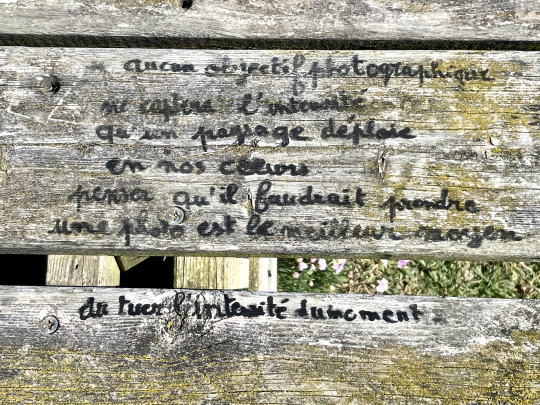 aucun objectif photographique
ne capture l'intensité
qu'un paysage déploie
en nos cœurs
penser qu'il faudrait prendre
une photo est le meilleur moyen
de tuer l'intensité du moment